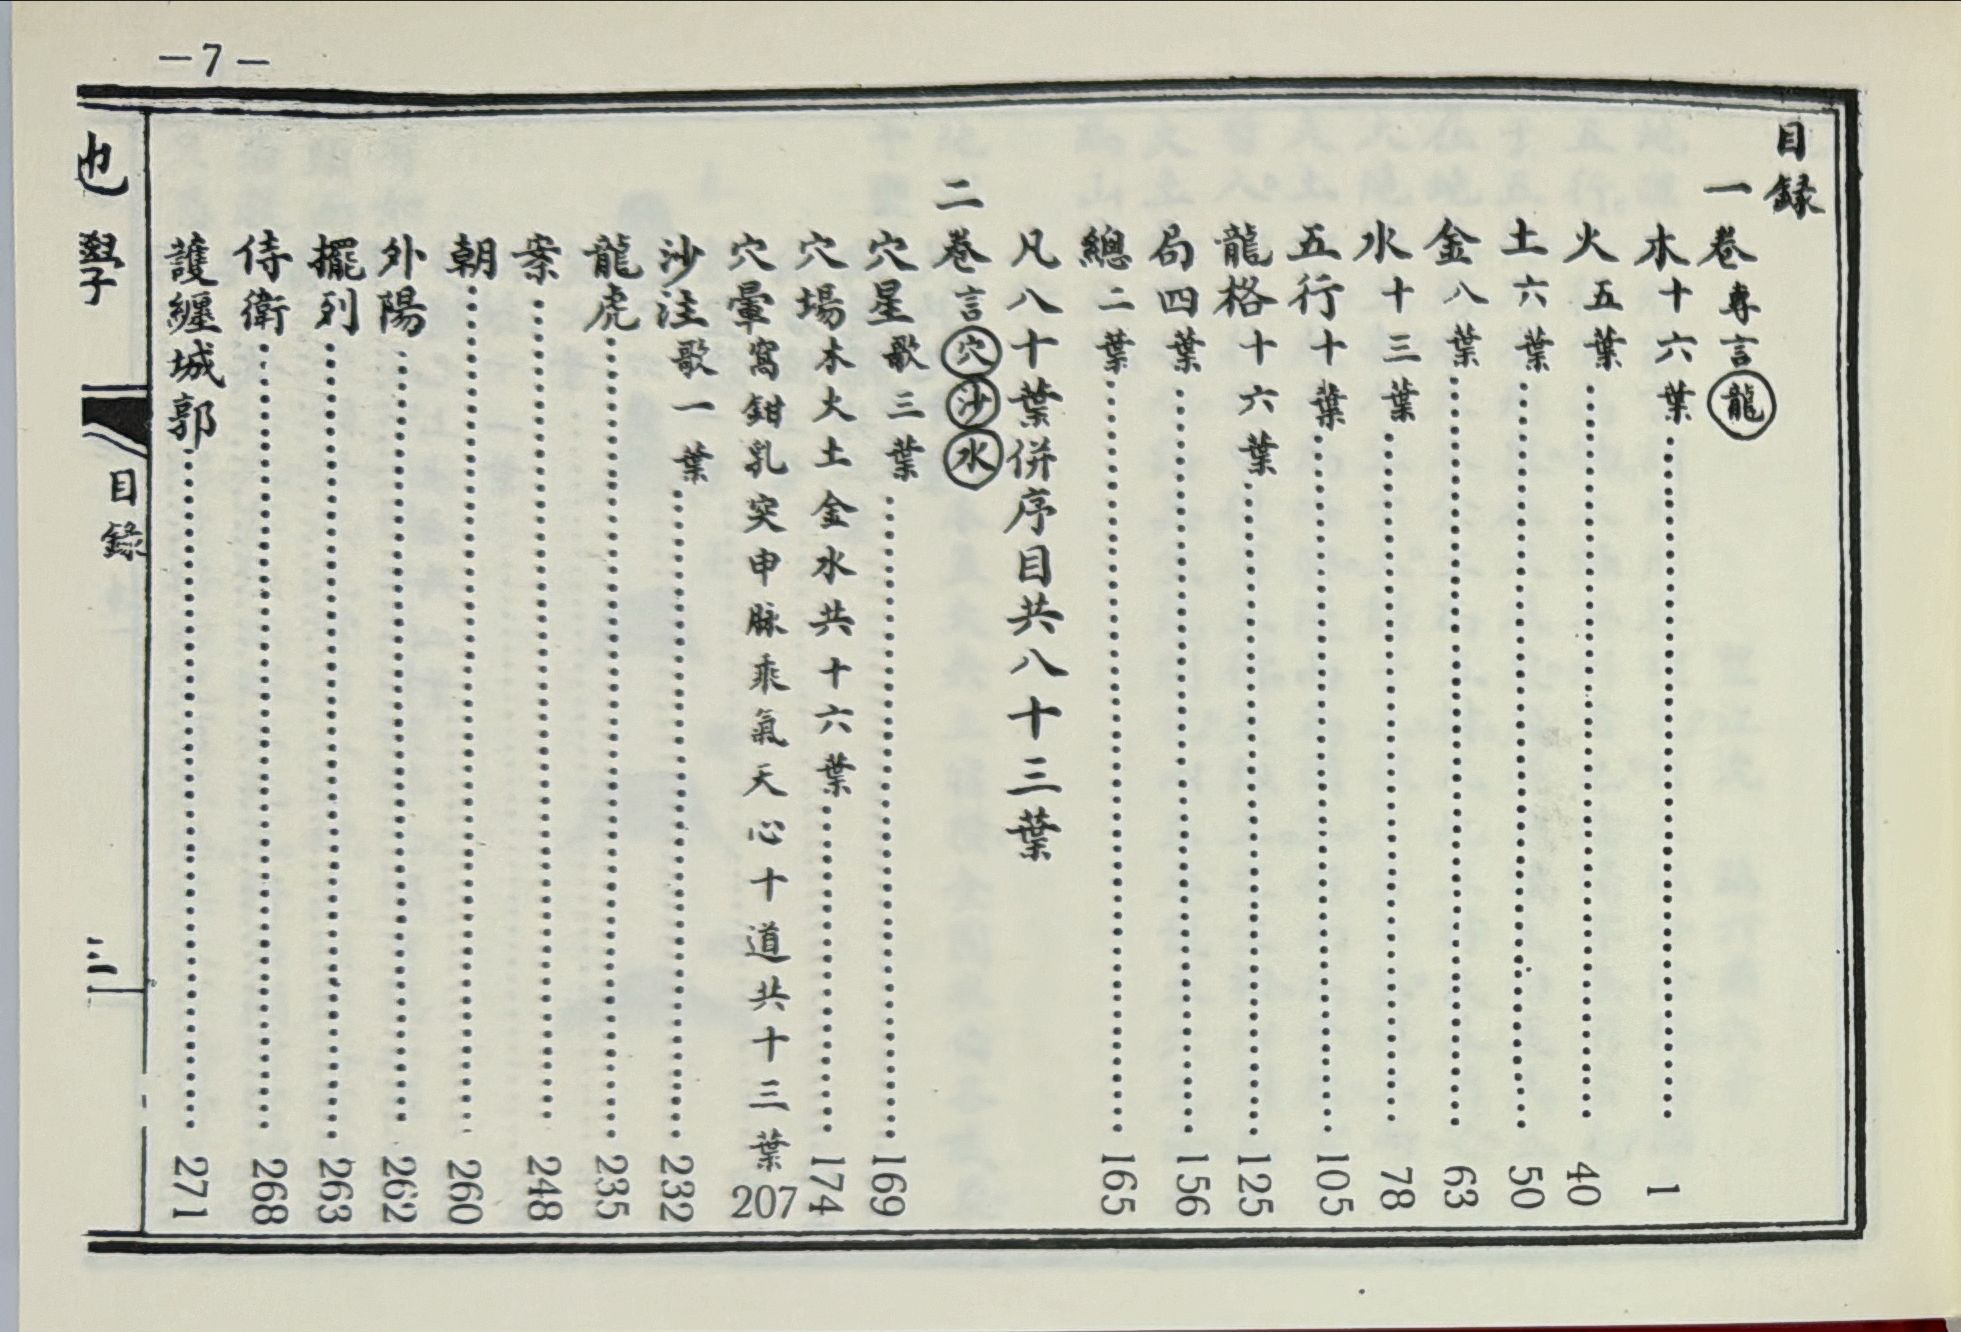 —7—
目錄
一卷專言龍
木十六葉……1
火五葉……40
土六葉……50
金八葉……63
水十三葉……78
五行十葉……105
龍格十六葉……125
局四葉……156
總二葉……165
凡八十葉併序目共八十三葉
二卷言穴沙水
穴星歌三葉……169
穴場木火土金水共十六葉……174
穴暈窩鉗乳突申脉乘氣天心十道共十三葉207
沙注歌一葉……232
龍虎……235
案……248
朝……260
外陽……262
擺列……263
侍衛……268
護纏城郭……271
目錄